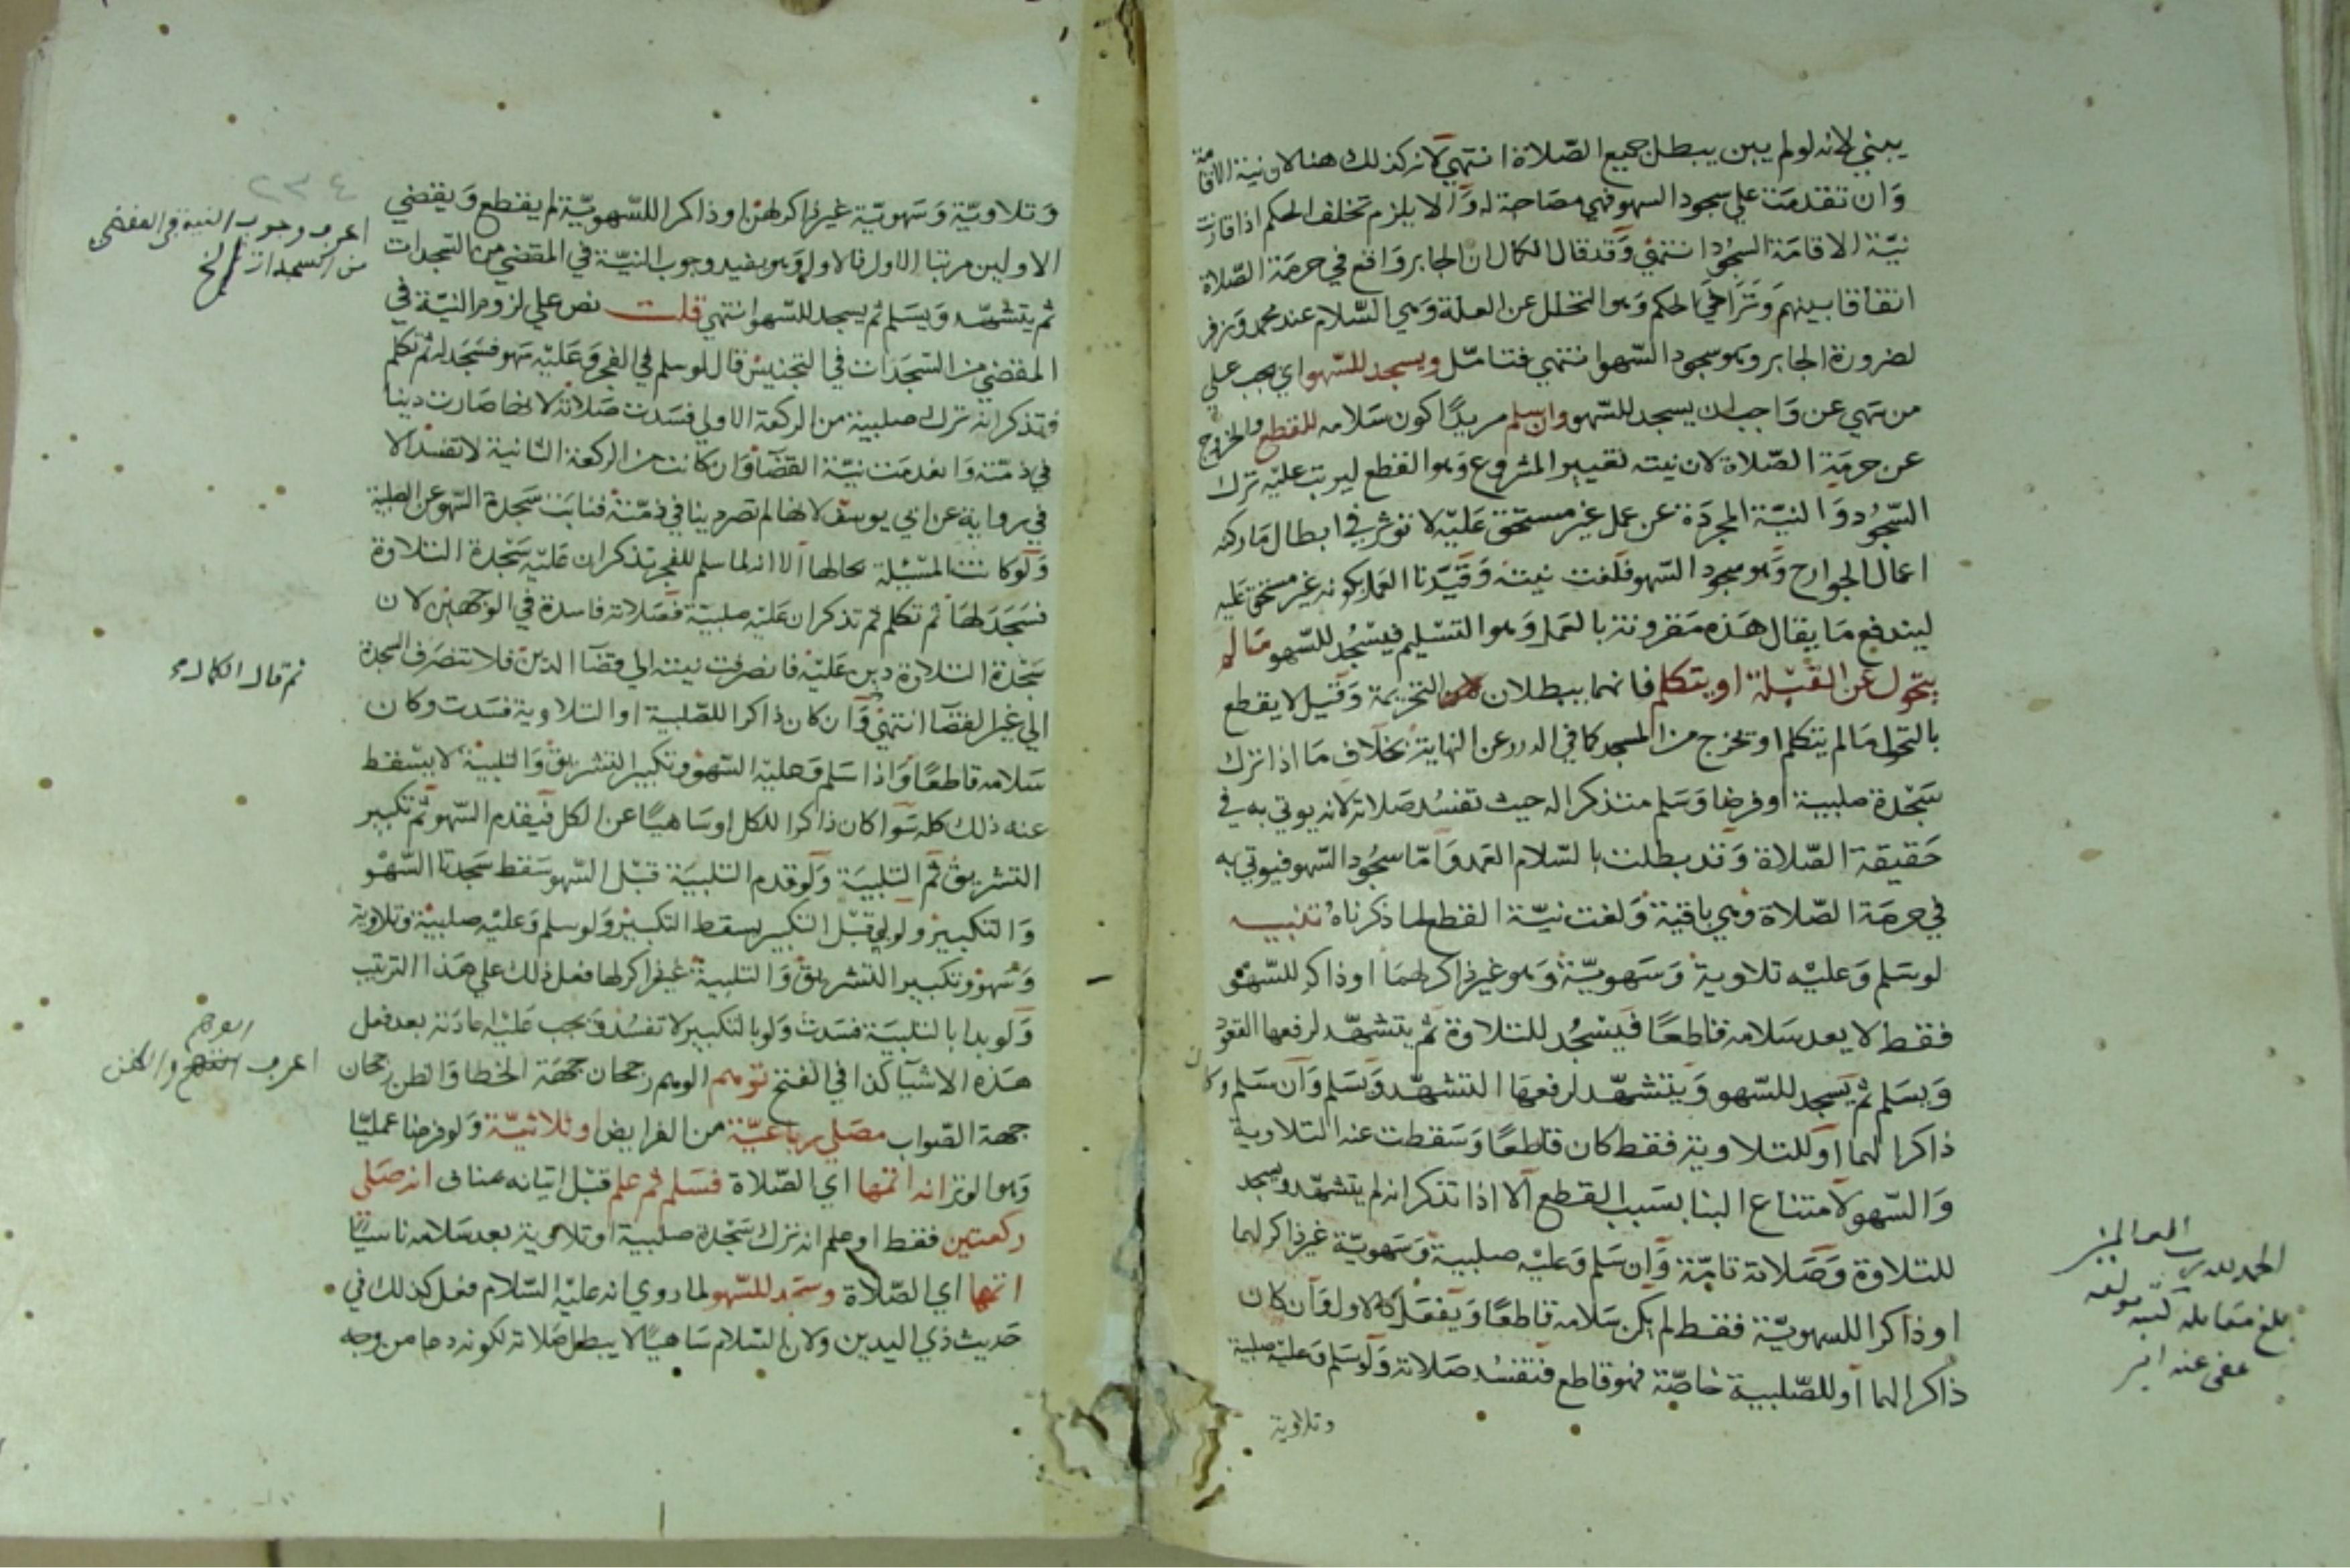 يبني لانه لو لم يبن يبطل جميع الصلاة انتهي لانه كذلك هنا لان نية الاقامة
وان تقدمت علي سجود السهو فهي مصاحبة له والا يلزم تخلف الحكم اذا قارنت
نية الاقامة السجود انتهي وقد قال الكمال ان الجابر واقع في حرمة الصلاة
اتفاقا بينهم وتراخي الحكم وهو التخلل عن العلة وهي السلام عند محمد وزفر
لضرورة الجابر وهو سجود السهو انتهي فتامل ويسجد للسهو اي يجب علي
من سهي عن واجب ان يسجد للسهو وان سلم مريدا كون سلامه للقطع والخروج
عن حرمة الصلاة لان نيته تغيير المشروع وهو القطع ليرتب عليه ترك
السجود والنية المجردة عن عمل غير مستحق عليه لا تؤثر في ابطال ما ركنه
اعمال الجوارح وهو سجود السهو فلغت نيته وقيدنا العمل بكونه غير مستحق عليه
ليندفع ما يقال هذه مقرونة بالعمل وهو التسليم فيسجد للسهو ما لم
يتحول عن القبلة او يتكلم فانهما يبطلان التحريمة وقيل لا يقطع
بالتحول ما لم يتكلم او يخرج من المسجد كما في الدرر عن النهاية بخلاف ما اذا ترك
سجدة صلبية او فرضا وسلم متذكرا له حيث تفسد صلاته لانه يوتي به في
حقيقة الصلاة وقد بطلت بالسلام العمد واما سجود السهو فيوتي به
في حرمة الصلاة وهي باقية ولغت نية القطع لما ذكرناه تنبيه
لو سلم وعليه تلاوية وسهوية وهو غير ذاكر لهما او ذاكر للسهو
فقط لا يعد سلامه قاطعا فيسجد للتلاوة ثم يتشهد لرفعها القعود
ويسلم ثم يسجد للسهو ويتشهد لرفعها التشهد ويسلم وان سلم وكان
ذاكرا لهما او للتلاوية فقط كان قاطعا وسقطت عنه التلاوية
والسهو لامتناع البنا بسبب القطع الا اذا تذكر انه لم يتشهد ويسجد
للتلاوة وصلاته تامة وان سلم وعليه صلبية وسهوية غير ذاكر لهما
او ذاكرا للسهوية فقط لم يكن سلامه قاطعا ويفعل كالاول وان كان
ذاكرا لهما او للصلبية خاصة فهو قاطع فتفسد صلاته ولو سلم وعليه صلبية
وتلاوية
الحمد لله رب العالمين
بلغ مقابلة كتبه مولفه
عفى عنه
٢٣٤
وتلاوية وسهوية غير ذاكر لهن او ذاكرا للسهوية لم يقطع ويقضي
الاولين مرتبا الاول فالاول وهو يفيد وجوب النية في المقضي من السجدات
ثم يتشهد ويسلم ثم يسجد للسهو انتهي قلت نص علي لزوم النية في
المقضي من السجدات في التجنيس قال لو سلم في الفجر وعليه سهو فسجد له ثم تكلم
فتذكر انه ترك صلبية من الركعة الاولي فسدت صلاته لانها صارت دينا
في ذمته وانعدمت نية القضا وان كانت من الركعة الثانية لا تفسد الا
في رواية عن ابي يوسف لانها لم تصر دينا في ذمته فنابت سجدة السهو عن الصلبية
ولو كانت المسئلة بحالها الا انه لما سلم للفجر تذكر ان عليه سجدة التلاوة
فسجد لها ثم تكلم ثم تذكر ان عليه صلبية فصلاته فاسدة في الوجهين لان
سجدة التلاوة دين عليه فانصرفت نيته الي قضا الدين فلا تنصرف السجدة
الي غير القضا انتهي وان كان ذاكرا للصلبية او التلاوية فسدت وكان
سلامه قاطعا واذا سلم وعليه السهو وتكبير التشريق والتلبية لا يسقط
عنه ذلك كله سوا كان ذاكرا للكل او ساهيا عن الكل فيقدم السهو ثم تكبير
التشريق ثم التلبية ولو قدم التلبية قبل السهو سقط سجدتا السهو
والتكبير ولو لبي قبل التكبير يسقط التكبير ولو سلم وعليه صلبية وتلاوية
وسهو وتكبير التشريق والتلبية غير ذاكر لها فعل ذلك علي هذا الترتيب
ولو بدا بالتلبية فسدت ولو بالتكبير لا تفسد ويجب عليه اعادته بعد فعل
هذه الاشيا كذا في الفتح توهم الوهم رجحان جهة الخطا والظن رجحان
جهة الصواب مصلي رباعية من الفرايض او ثلاثية ولو فرضا عمليا
وهو الوتر انه اتمها اي الصلاة فسلم ثم علم قبل اتيانه بمناف انه صلي
ركعتين فقط او علم انه ترك سجدة صلبية او تلاوية بعد سلامه ناسيا
اتمها اي الصلاة وسجد للسهو لما روي انه عليه السلام فعل كذلك في
حديث ذي اليدين ولان السلام ساهيا لا يبطل صلاته لكونه دعا من وجه
اعرف وجوب النية في المقضي
من السجدات الخ
ثم قال الكمال
اعرف الوهم والظن